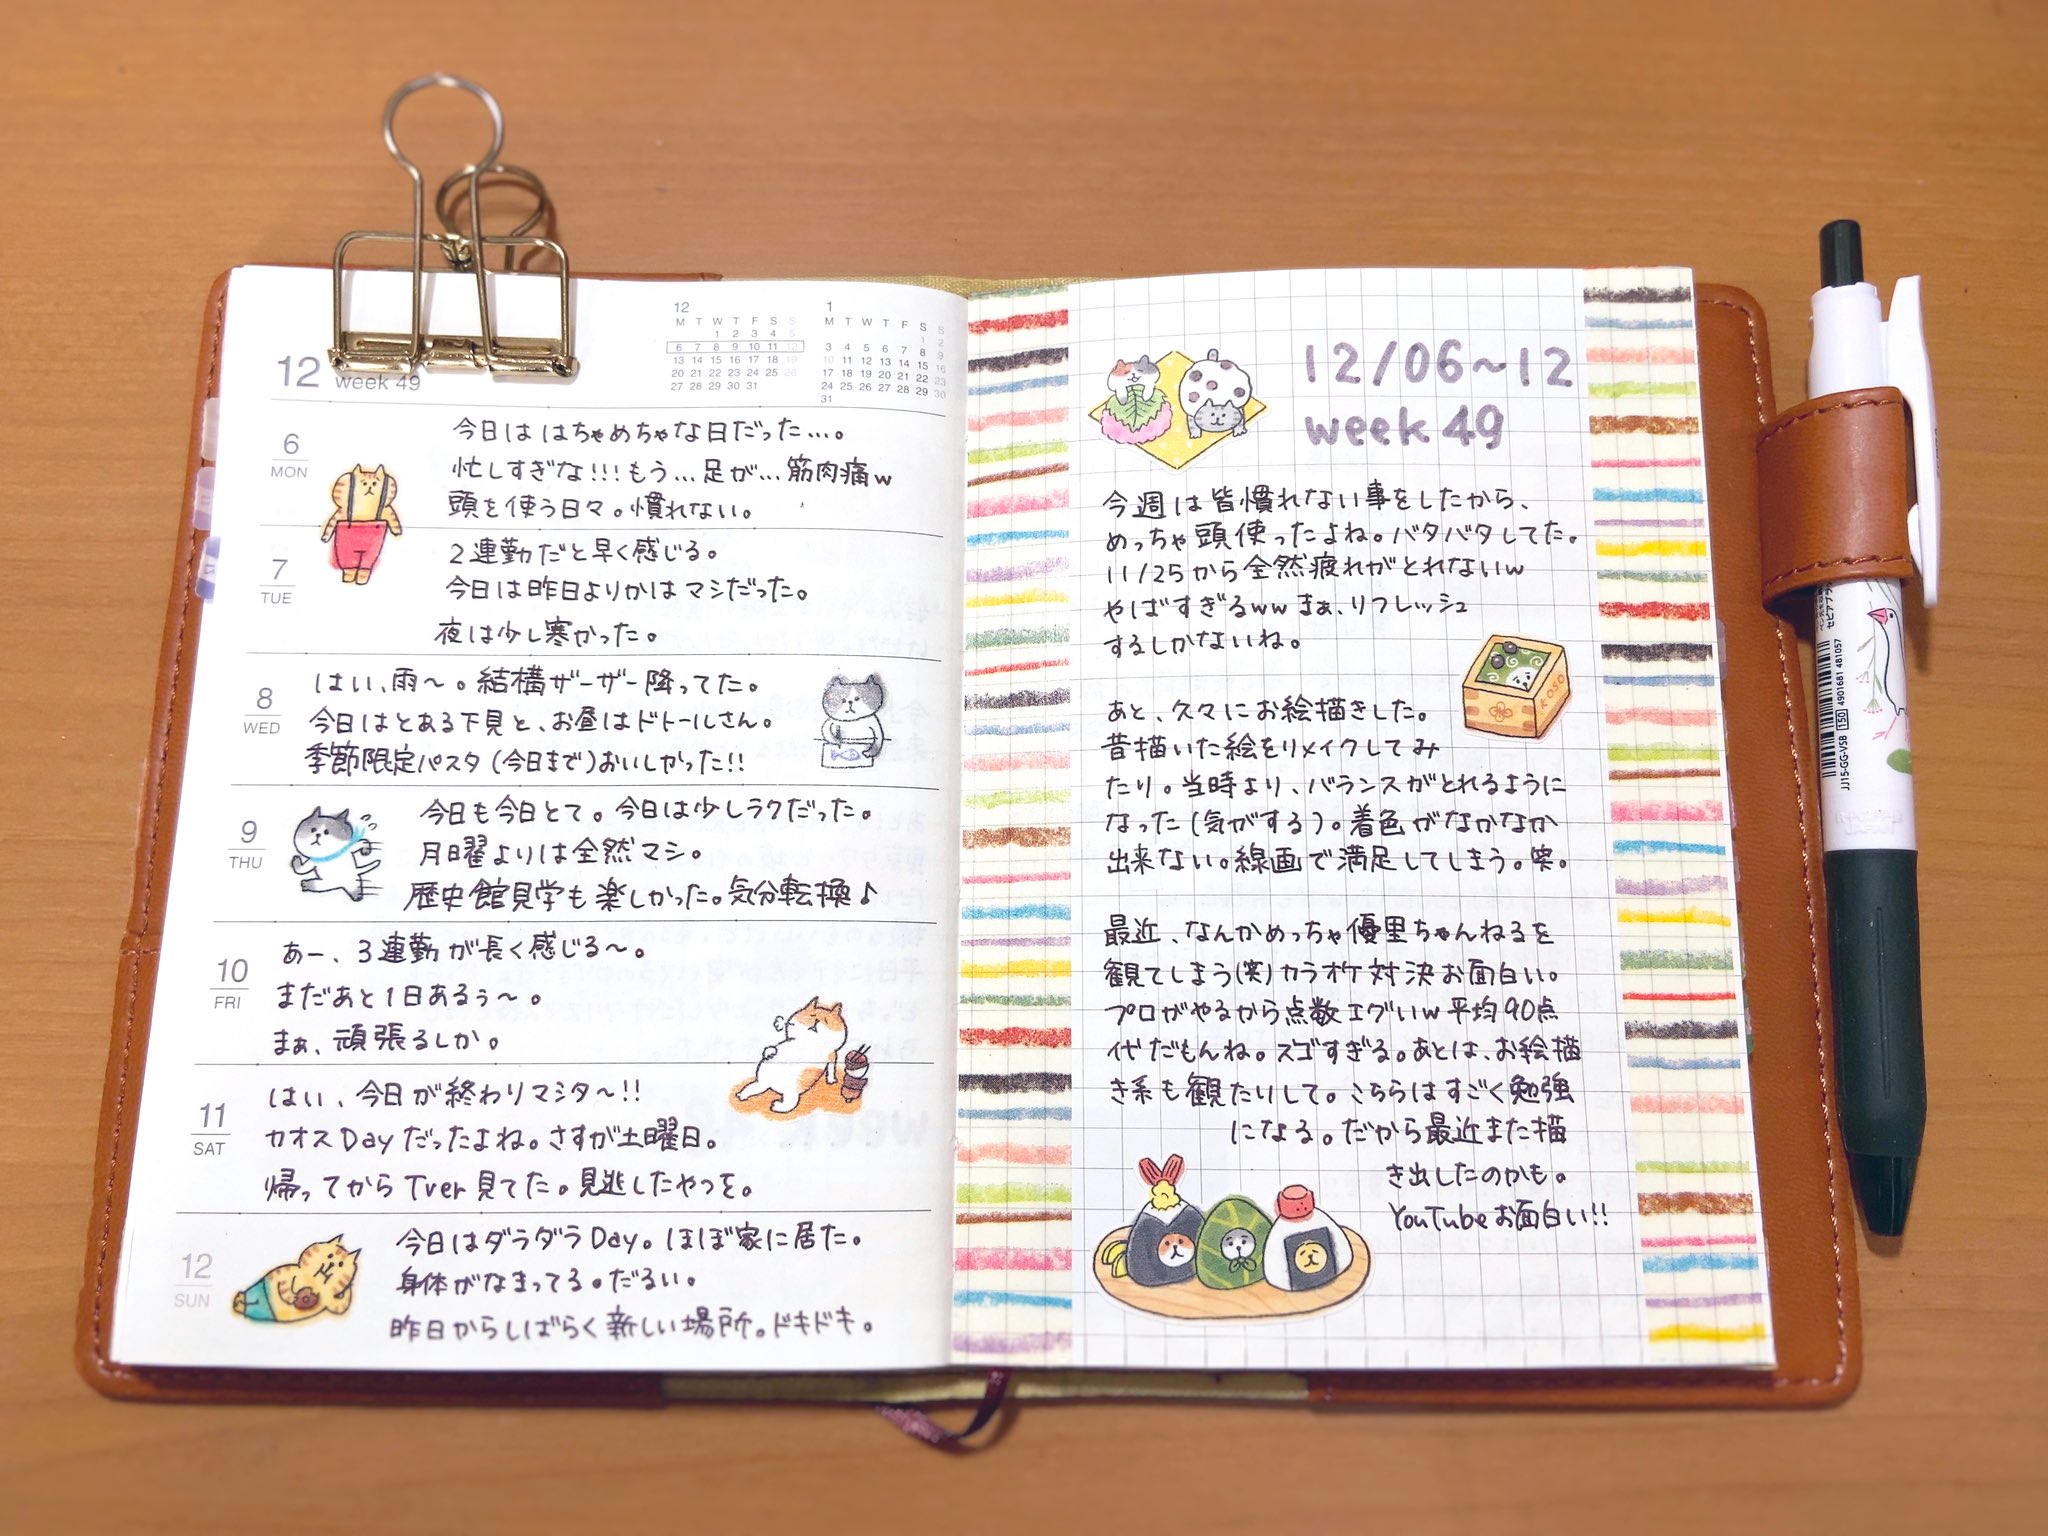 12 week 49
12
M T W T F S S
1 2 3 4 5
6 7 8 9 10 11 12
13 14 15 16 17 18 19
20 21 22 23 24 25 26
27 28 29 30 31
1
M T W T F S S
1 2
3 4 5 6 7 8 9
10 11 12 13 14 15 16
17 18 19 20 21 22 23
24 25 26 27 28 29 30
31
6
MON
今日ははちゃめちゃな日だった…。
忙しすぎな!!!もう…足が…筋肉痛w
頭を使う日々。慣れない。
7
TUE
2連勤だと早く感じる。
今日は昨日よりかはマシだった。
夜は少し寒かった。
8
WED
はい、雨〜。結構ザーザー降ってた。
今日はとある下見と、お昼はドトールさん。
季節限定パスタ(今日まで)おいしかった!!
9
THU
今日も今日とて。今日は少しラクだった。
月曜よりは全然マシ。
歴史館見学も楽しかった。気分転換♪
10
FRI
あー、3連勤が長く感じる〜。
まだあと1日あるぅ〜。
まぁ、頑張るしか。
11
SAT
はい、今日が終わりマシタ〜!!
カオスDayだったよね。さすが土曜日。
帰ってからTver見てた。見逃したやつを。
12
SUN
今日はダラダラDay。ほぼ家に居た。
身体がなまってる。だるい。
昨日からしばらく新しい場所。ドキドキ。
12/06~12
week 49
今週は皆慣れない事をしたから、
めっちゃ頭使ったよね。バタバタしてた。
11/25から全然疲れがとれないw
やばすぎるwwまぁ、リフレッシュ
するしかないね。
あと、久々にお絵描きした。
昔描いた絵をリメイクしてみ
たり。当時より、バランスがとれるように
なった(気がする)。着色がなかなか
出来ない。線画で満足してしまう。笑。
KOSO
最近、なんかめっちゃ優里ちゃんねるを
観てしまう(笑)カラオケ対決お面白い。
プロがやるから点数エグいw平均90点
代だもんね。スゴすぎる。あとは、お絵描
き系も観たりして。こちらはすごく勉強
になる。だから最近また描
き出したのかも。
YouTubeお面白い!!
JJ15-GG-VSB 150 4901681 481057